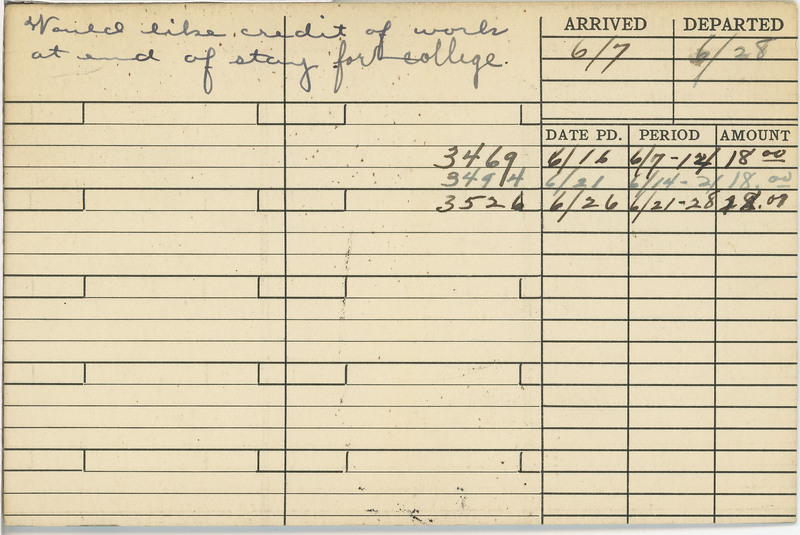 Would like credit of work
at end of stay for college.
ARRIVED DEPARTED
6/7 6/28
DATE PD. PERIOD AMOUNT
3469 6/16 6/7-14 18.00
3494 6/21 6/14-21 18.00
3526 6/26 6/21-28 18.00